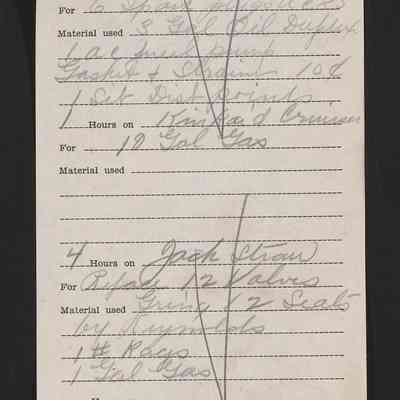 For 6 Spark plugs
Material used 3 Gal Oil Duplex
1 AC fuel pump
Gasket & Strainer 10¢
1 Set Dist Points
1 Hours on Kinkaid Cruiser
For 19 Gal Gas
Material used
4 Hours on Jack Straw
For Refac 12 Valves
Material used Grind 12 Seats
by Reynolds
1 # Rags
1 Gal Gas